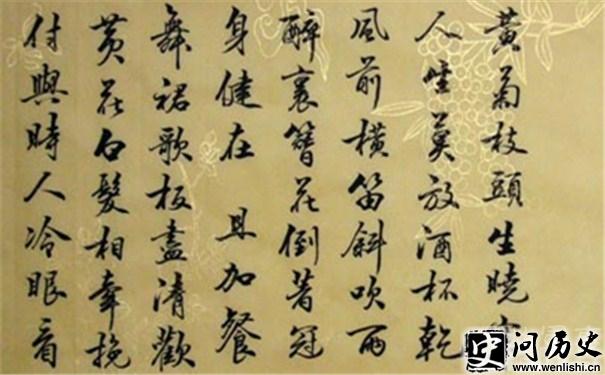 黃菊枝頭生曉
人生莫放酒杯乾
風前橫笛斜吹雨
醉裏簪花倒著冠
身健在 且加餐
舞裙歌板盡清歡
黃花白髮相牽挽
付與時人冷眼看
史 问历史
www.wenlishi.cn